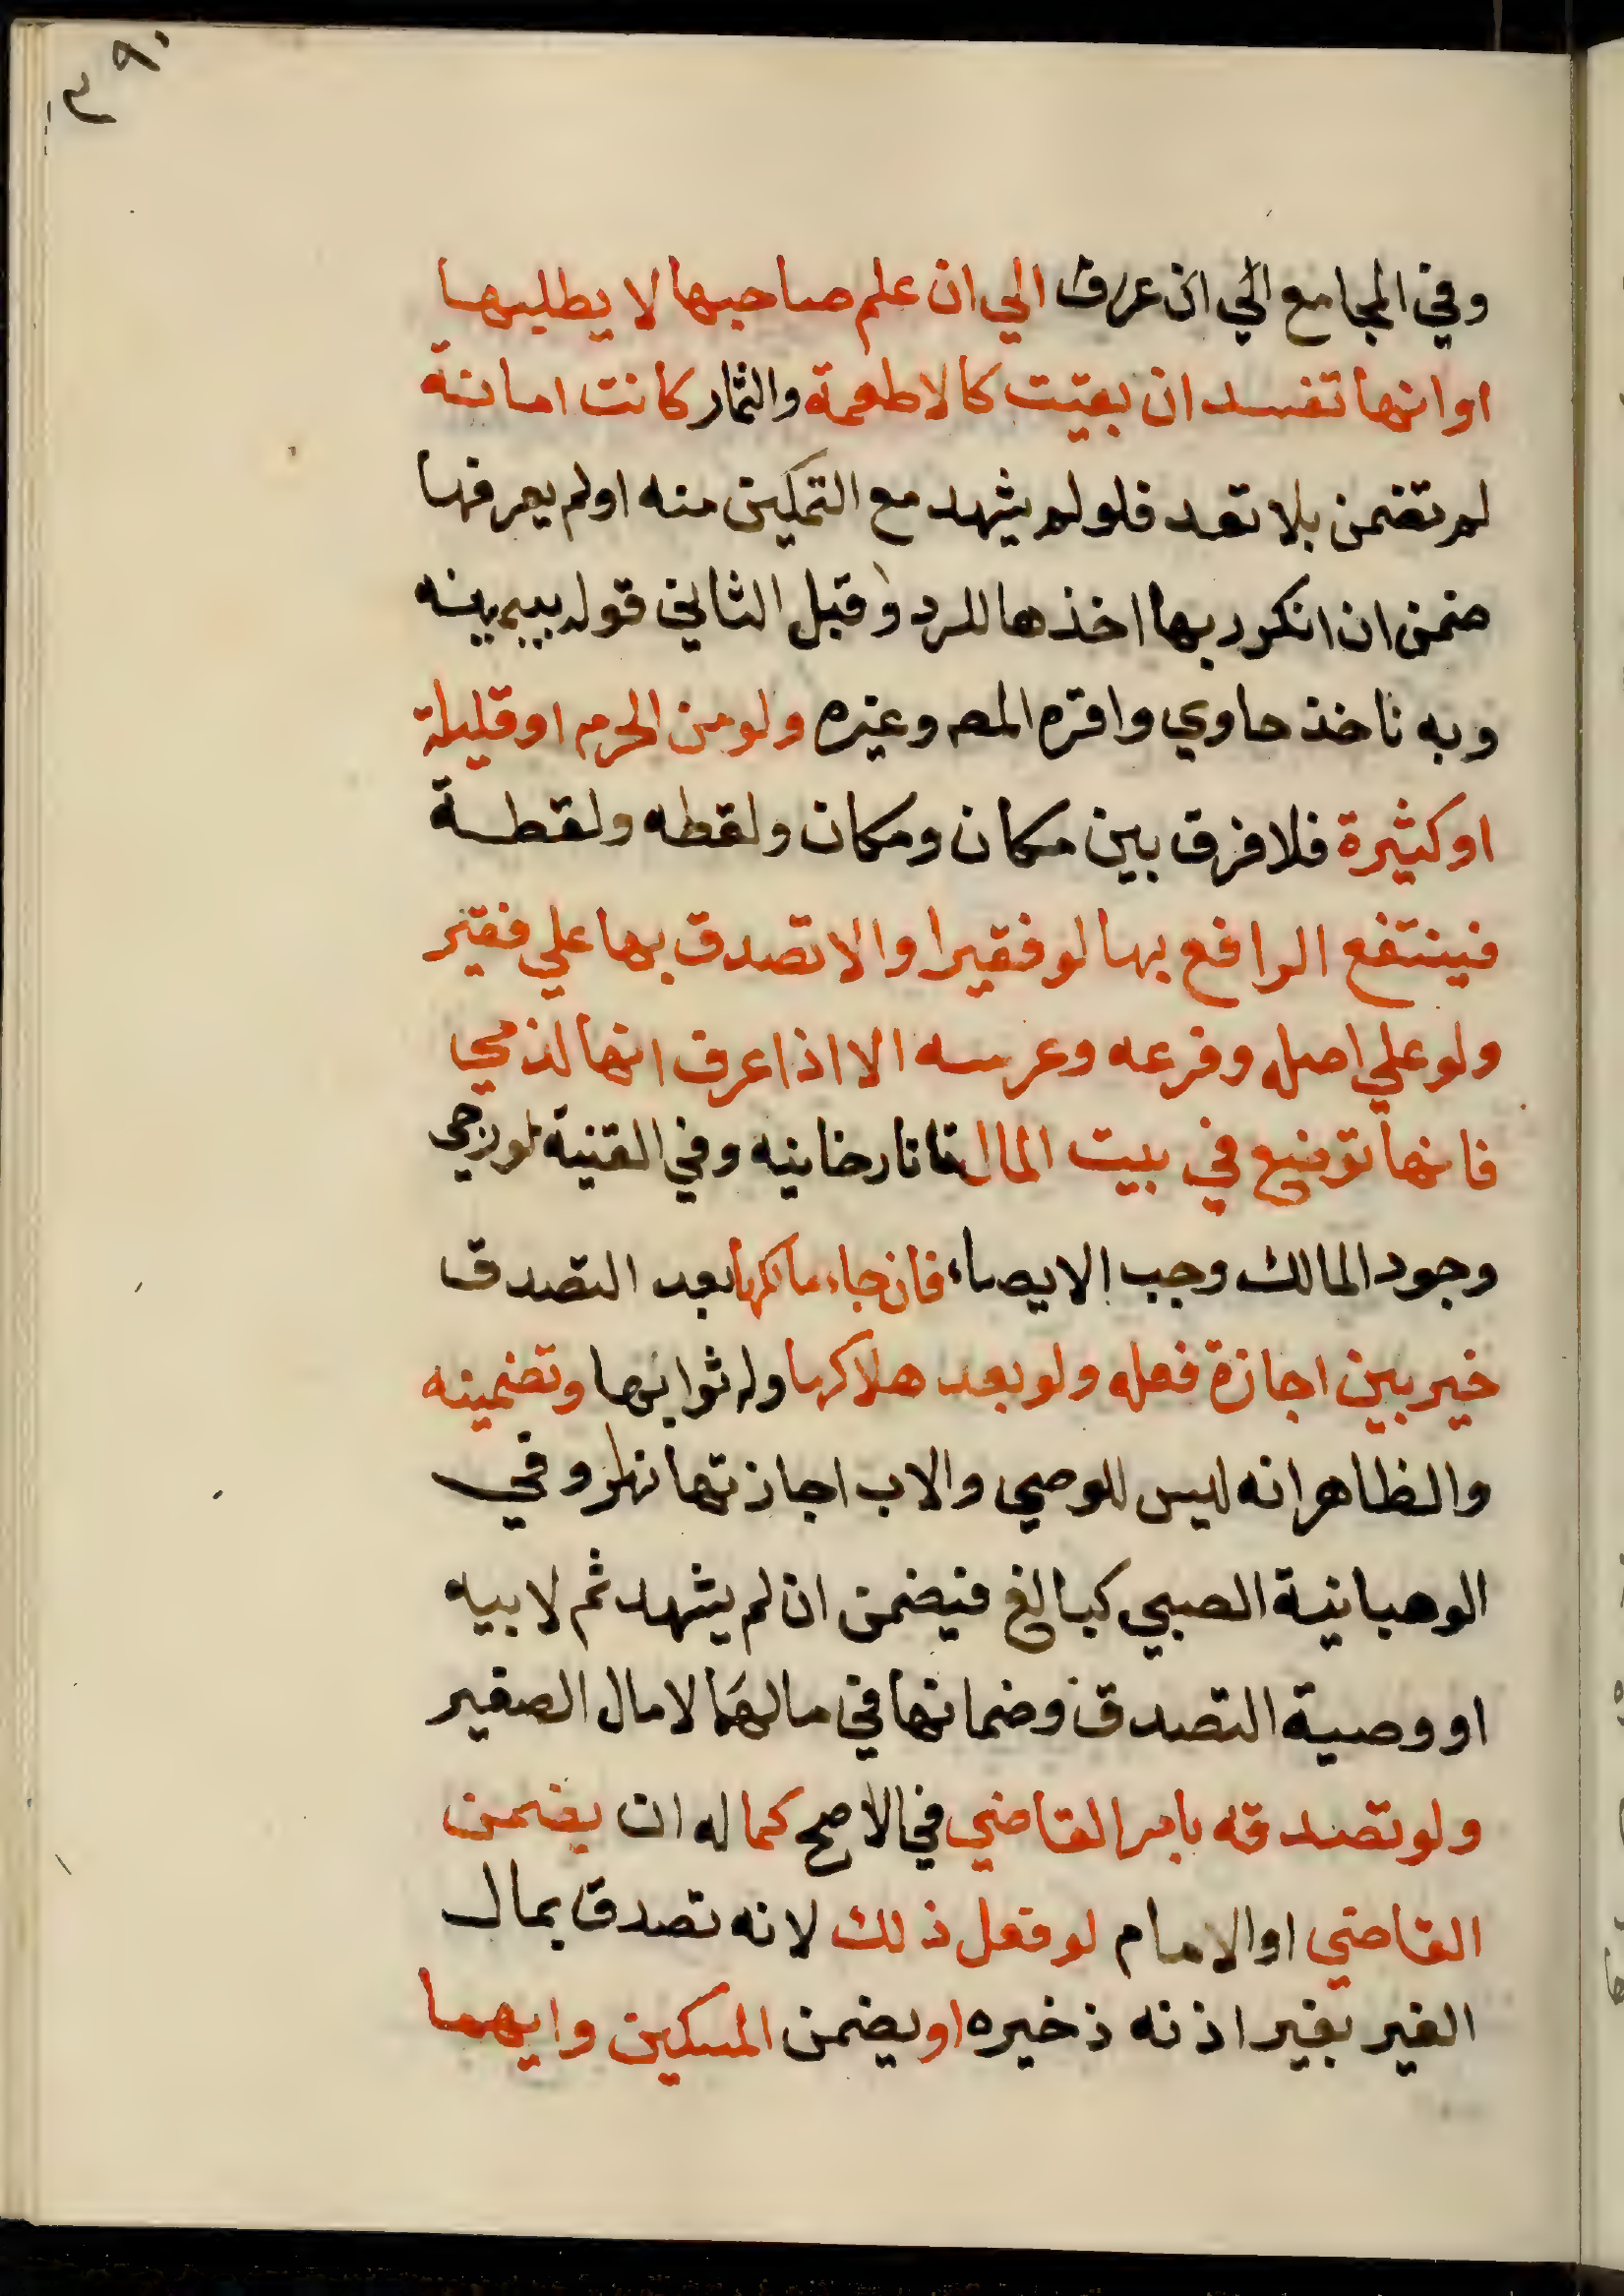 ٣٩٠
وفي المجامع الي ان عرف الي ان علم صاحبها لا يطلبها
او انها تفسد ان بقيت كالاطعمة والثمار كانت امانة
لم تضمن بلا تعد فلو لم يشهد مع التمكين منه او لم يعرفها
ضمن ان انكر ربها اخذها للرد وقبل الثاني قوله بيمينه
وبه ناخذ حاوي واقره المص وغيره ولو من الحرم او قليلة
او كثيرة فلا فرق بين مكان ومكان ولقطه ولقطة
فينتفع الرافع بها لو فقيرا والا تصدق بها علي فقير
ولو علي اصله وفرعه وعرسه الا اذا عرف انها لذمي
فانها توضع في بيت المال تاتارخانيه وفي القنية لو رجي
وجود المالك وجب الايصاء فان جاء مالكها بعد التصدق
خير بين اجازة فعله ولو بعد هلاكها وله ثوابها وتضمينه
والظاهر انه ليس للوصي والاب اجازتها نهر وفي
الوهبانية الصبي كبالغ فيضمن ان لم يشهد ثم لابيه
او وصية التصدق وضمانها في مالهما لا مال الصغير
ولو تصدقه بامر القاضي في الاصح كما له ان يضمن
القاضي او الامام لو فعل ذلك لانه تصدق بمال
الغير بغير اذنه ذخيره او يضمن المسكين وايهما